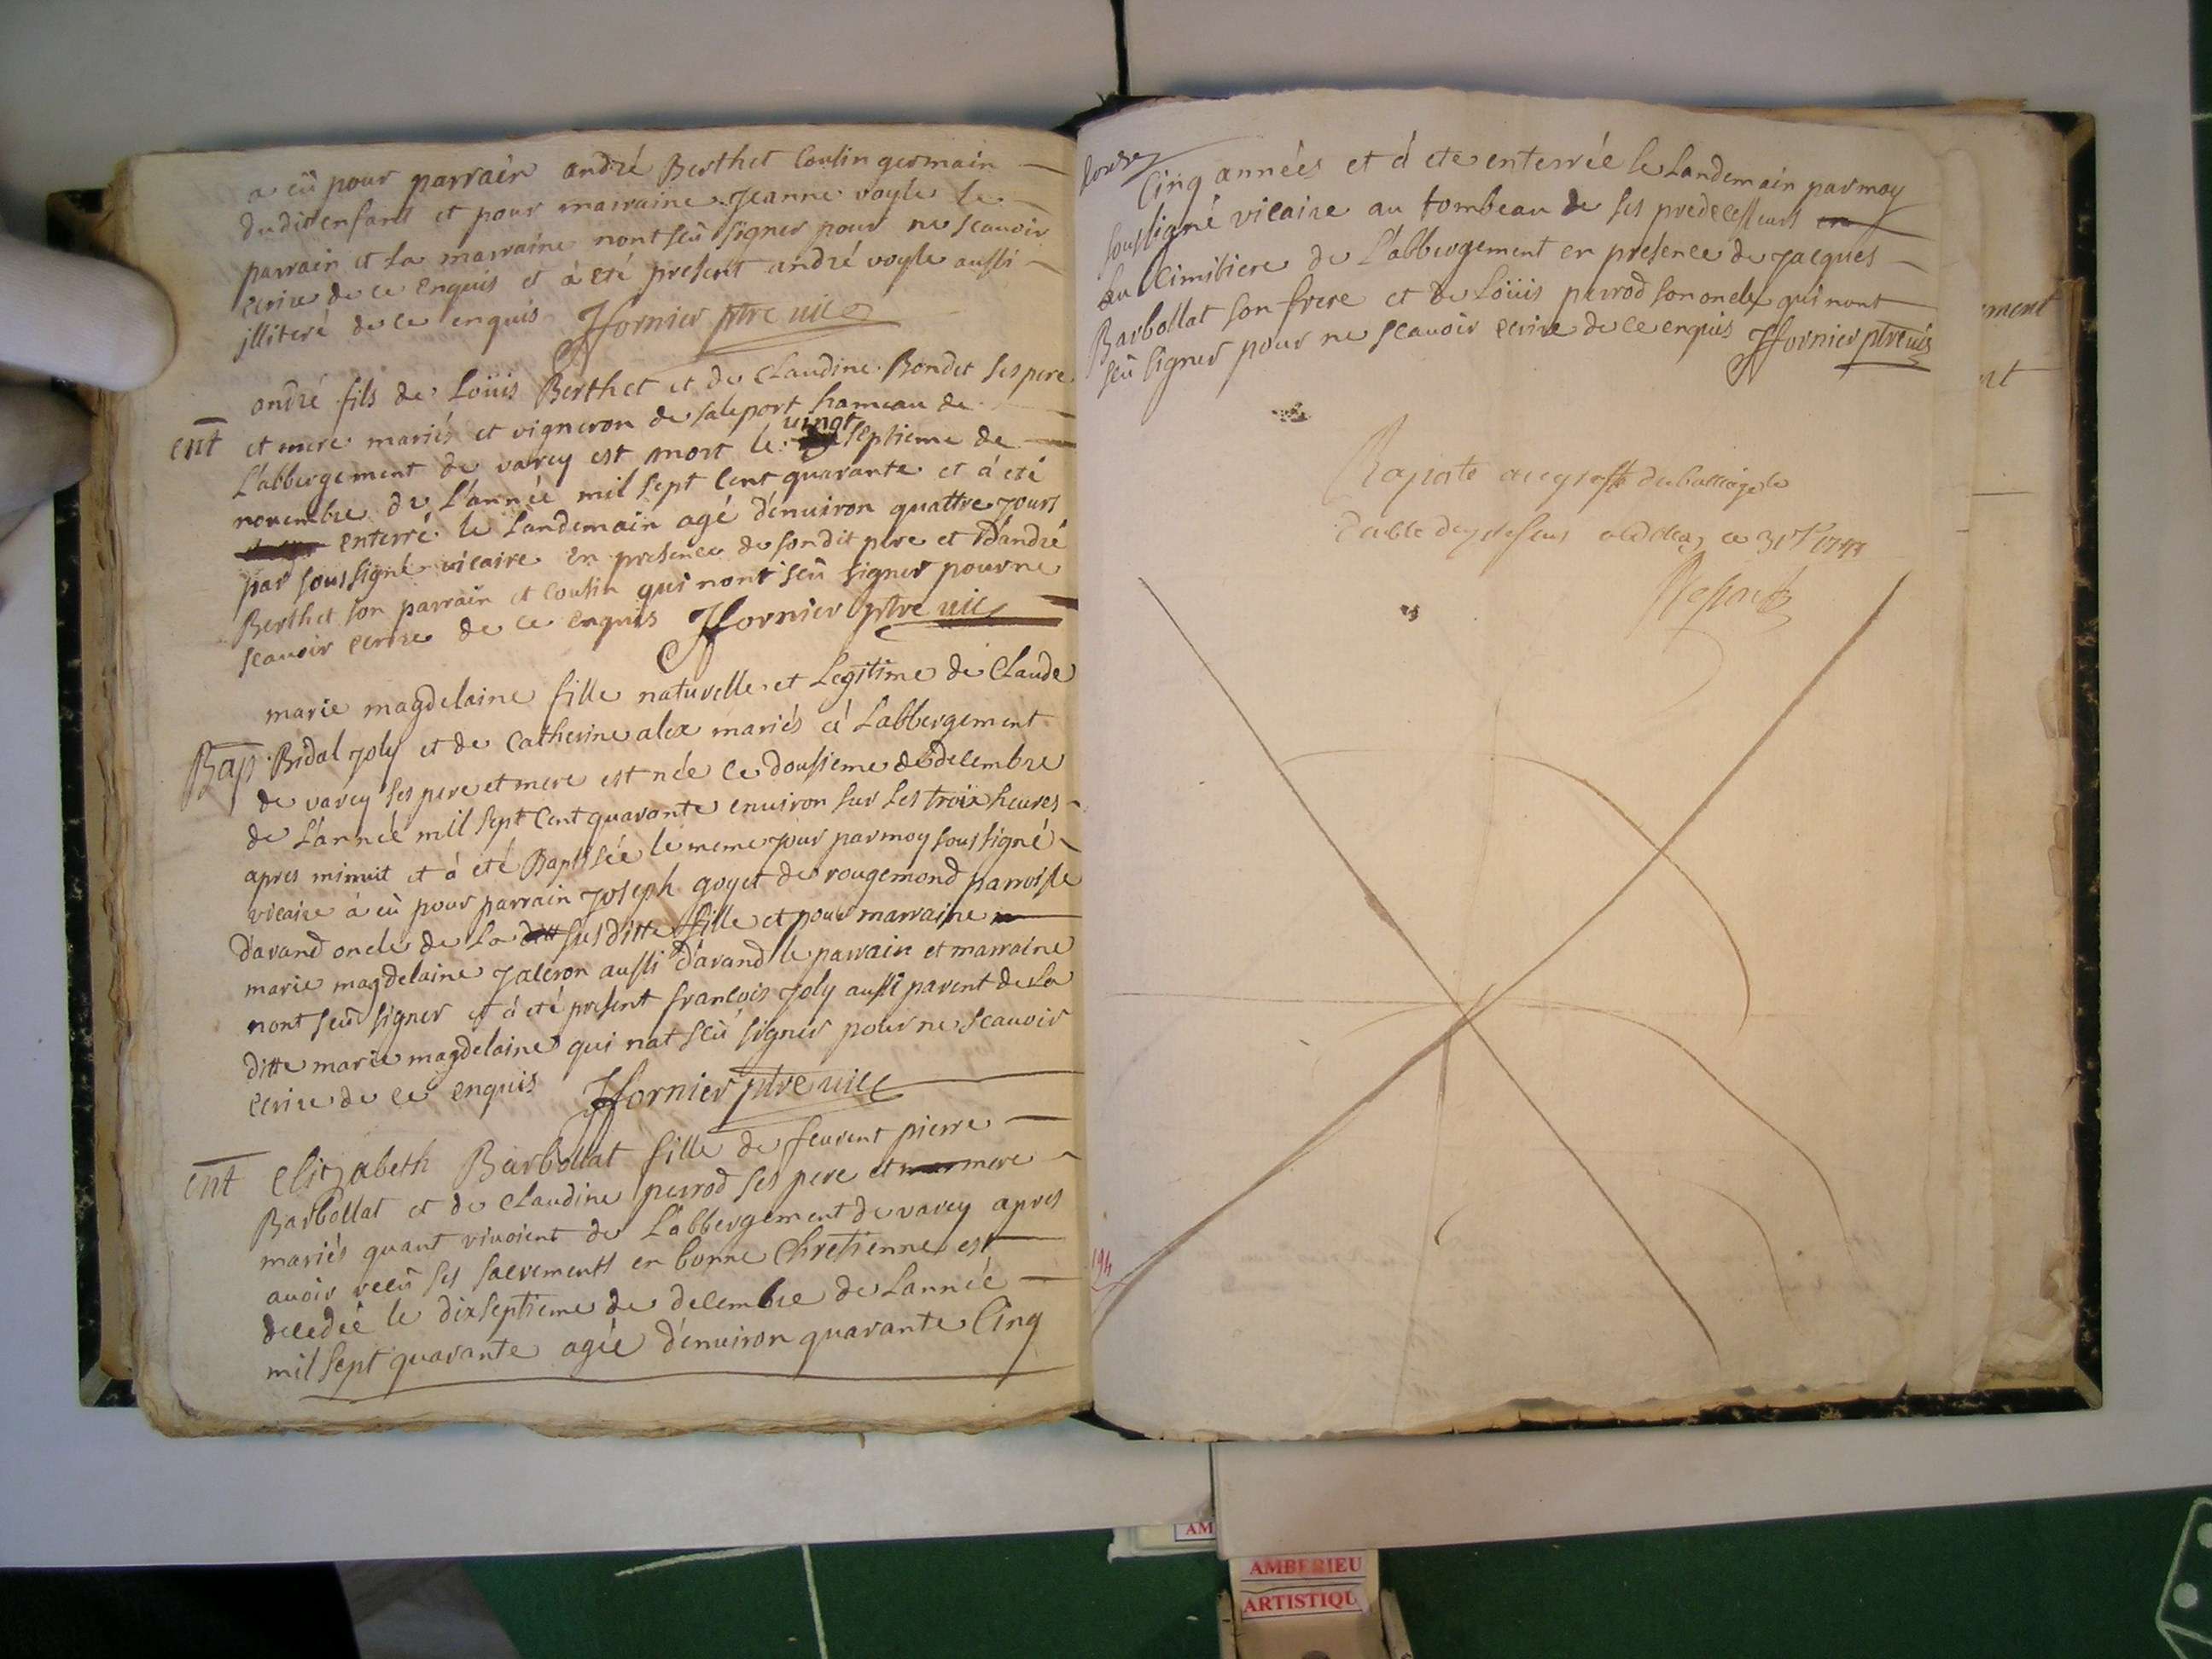 a eû pour parrain andré Berthet Cousin germain
dudit enfant et pour marraine Jeanne voyle le
parrain et la marraine nont scû signer pour ne scavoir
ecrire de ce enquis et à eté present andré voyle aussi
jlliteré de ce enquis JFornier ptre vic
andré fils de Loüis Berthet et de Claudine Bondet ses pere
ent et mere mariés et vigneron de saleport hameau de
vingt
L'abbergement de varey est mort le septieme de
novembre de L'année mil sept Cent quarante et à eté
enterré le Landemain agé d'enuiron quattre Jours
par soussigné vicaire en presence de sondit pere et D'andré
Berthet son parrain et Cousin qui nont scû signer pour ne
scavoir ecrire de ce enquis JFornier ptre vic
marie magdelaine fille naturelle et Legitime de Claude
Bap Bidal Joly et de Catherine alex mariés à Labbergement
de varey ses pere et mere est née le dousieme de decembre
de L'année mil sept Cent quarante enuiron sur les troix heures
apres minuit et à eté Baptisée le meme jour par moy soussigné
vicaire à eû pour parrain Joseph goyet de rougemond parroisse
d'arand oncle de la ditt susditte fille et pour marraine
marie magdelaine Jaleron aussi d'arand le parrain et marraine
nont scû signer et à eté present francois Joly aussi parent de La
ditte marie magdelaine qui nat scû signer pour ne scauoir
ecrire de ce enquis JFornier ptre vic
ent Elizabeth Barbollat fille de feurent pierre
Barbollat et de Claudine perrod ses pere et mere
mariés quant vivoient de L'abbergement de varey apres
auoir recû ses sacrements en bonne Chretienne est
decedée le dixseptieme de decembre de Lannée
mil sept quarante agée d'enuiron quarante Cinq
Cinq années et à ete enterrée le Landemain par moy
soussigné vicaire au tombeau de ses predecesseurs en
au Cimitiere de L'abbergement en presence de Jacques
Barbollat son frere et de Loüis perrod son oncle qui nont
scû signer pour ne scauoir ecrire de ce enquis JFornier ptre vic
194
AMBERIEU
ARTISTIQU